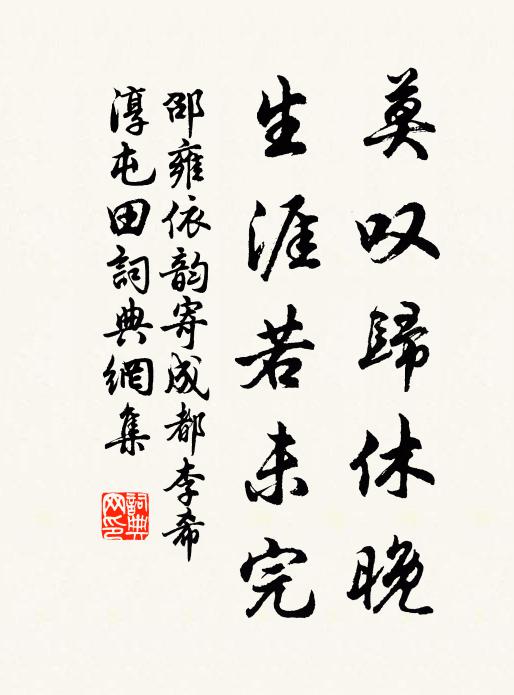 莫叹歸休晚
生涯若未完
邵雍依韵寄成都李希
淳屯田詞典網集
詞典网印